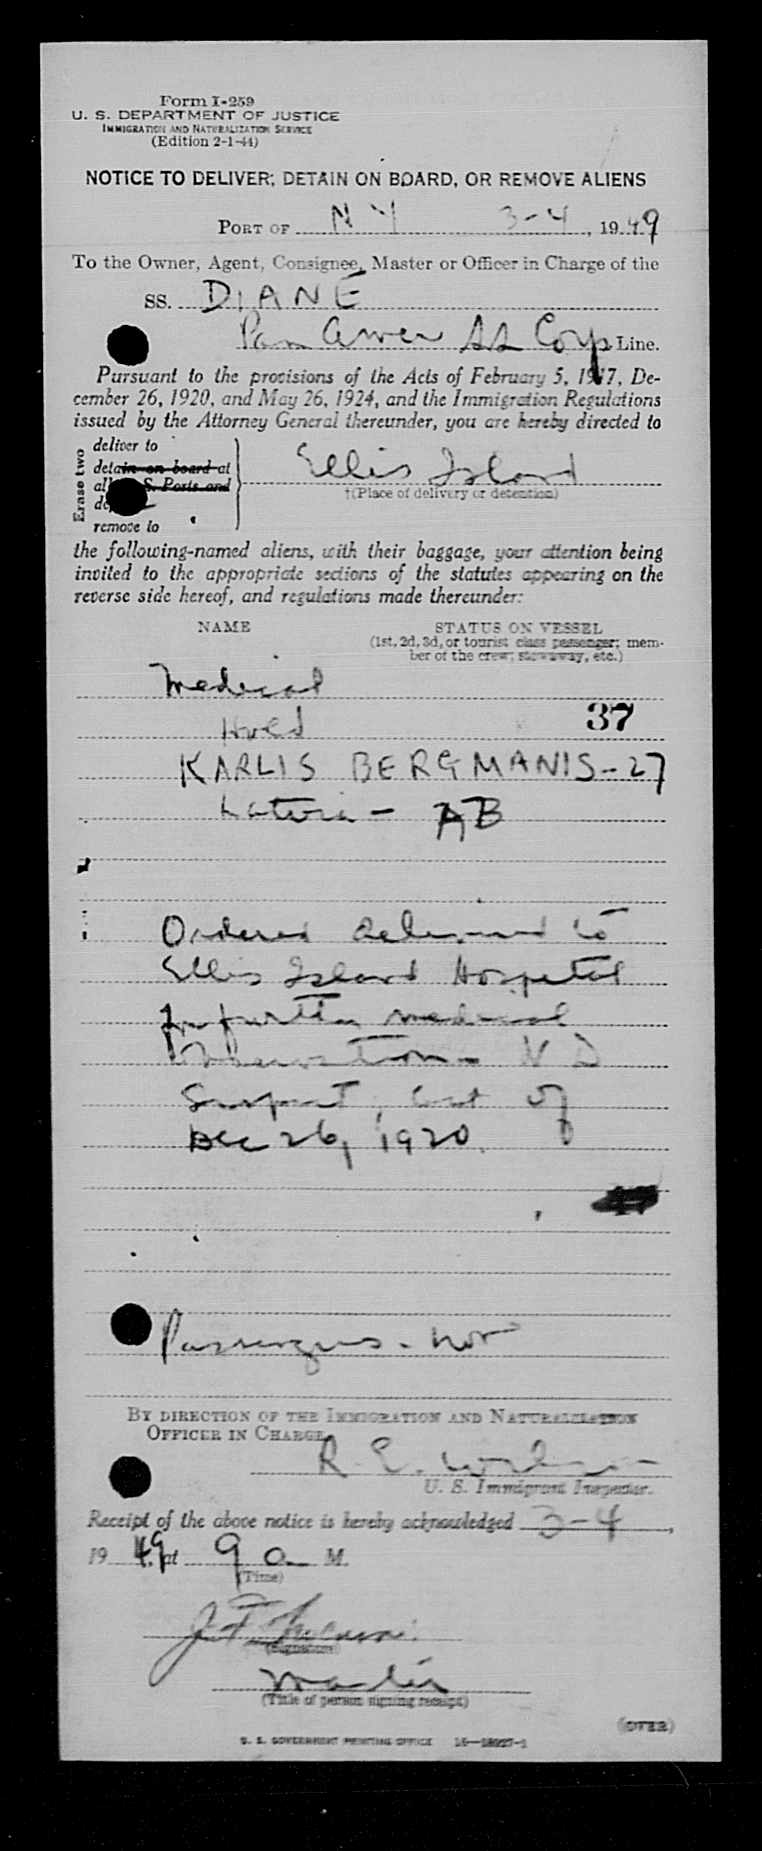 Form I-259
U. S. DEPARTMENT OF JUSTICE
IMMIGRATION AND NATURALIZATION SERVICE
(Edition 2-1-44)
NOTICE TO DELIVER, DETAIN ON BOARD, OR REMOVE ALIENS
PORT OF NY 3-4, 1949
To the Owner, Agent, Consignee, Master or Officer in Charge of the
SS. DIANE
Pan Amer SS Corp Line.
Pursuant to the provisions of the Acts of February 5, 1917, De-
cember 26, 1920, and May 26, 1924, and the Immigration Regulations
issued by the Attorney General thereunder, you are hereby directed to
Erase two
deliver to
detain on board at
all U. S. Ports and
remove to
Ellis Island
†(Place of delivery or detention)
the following-named aliens, with their baggage, your attention being
invited to the appropriate sections of the statutes appearing on the
reverse side hereof, and regulations made thereunder:
NAME STATUS ON VESSEL
(1st, 2d, 3d, or tourist class passenger; mem-
ber of the crew; stowaway, etc.)
Medical
Hold 37
KARLIS BERGMANIS-27
Latvia - AB
Ordered delivered to
Ellis Island Hospital
for further medical
observation - V D
Suspect, Act of
Dec 26, 1920.
47
Passengers -
BY DIRECTION OF THE IMMIGRATION AND NATURALIZATION
OFFICER IN CHARGE.
R. E.
U. S. Immigrant Inspector.
Receipt of the above notice is hereby acknowledged 3-4,
1949, at 9 a M.
(Time)
J. F.
(Signature)
Master
(Title of person signing receipt)
(OVER)
U. S. GOVERNMENT PRINTING OFFICE 16-18927-1